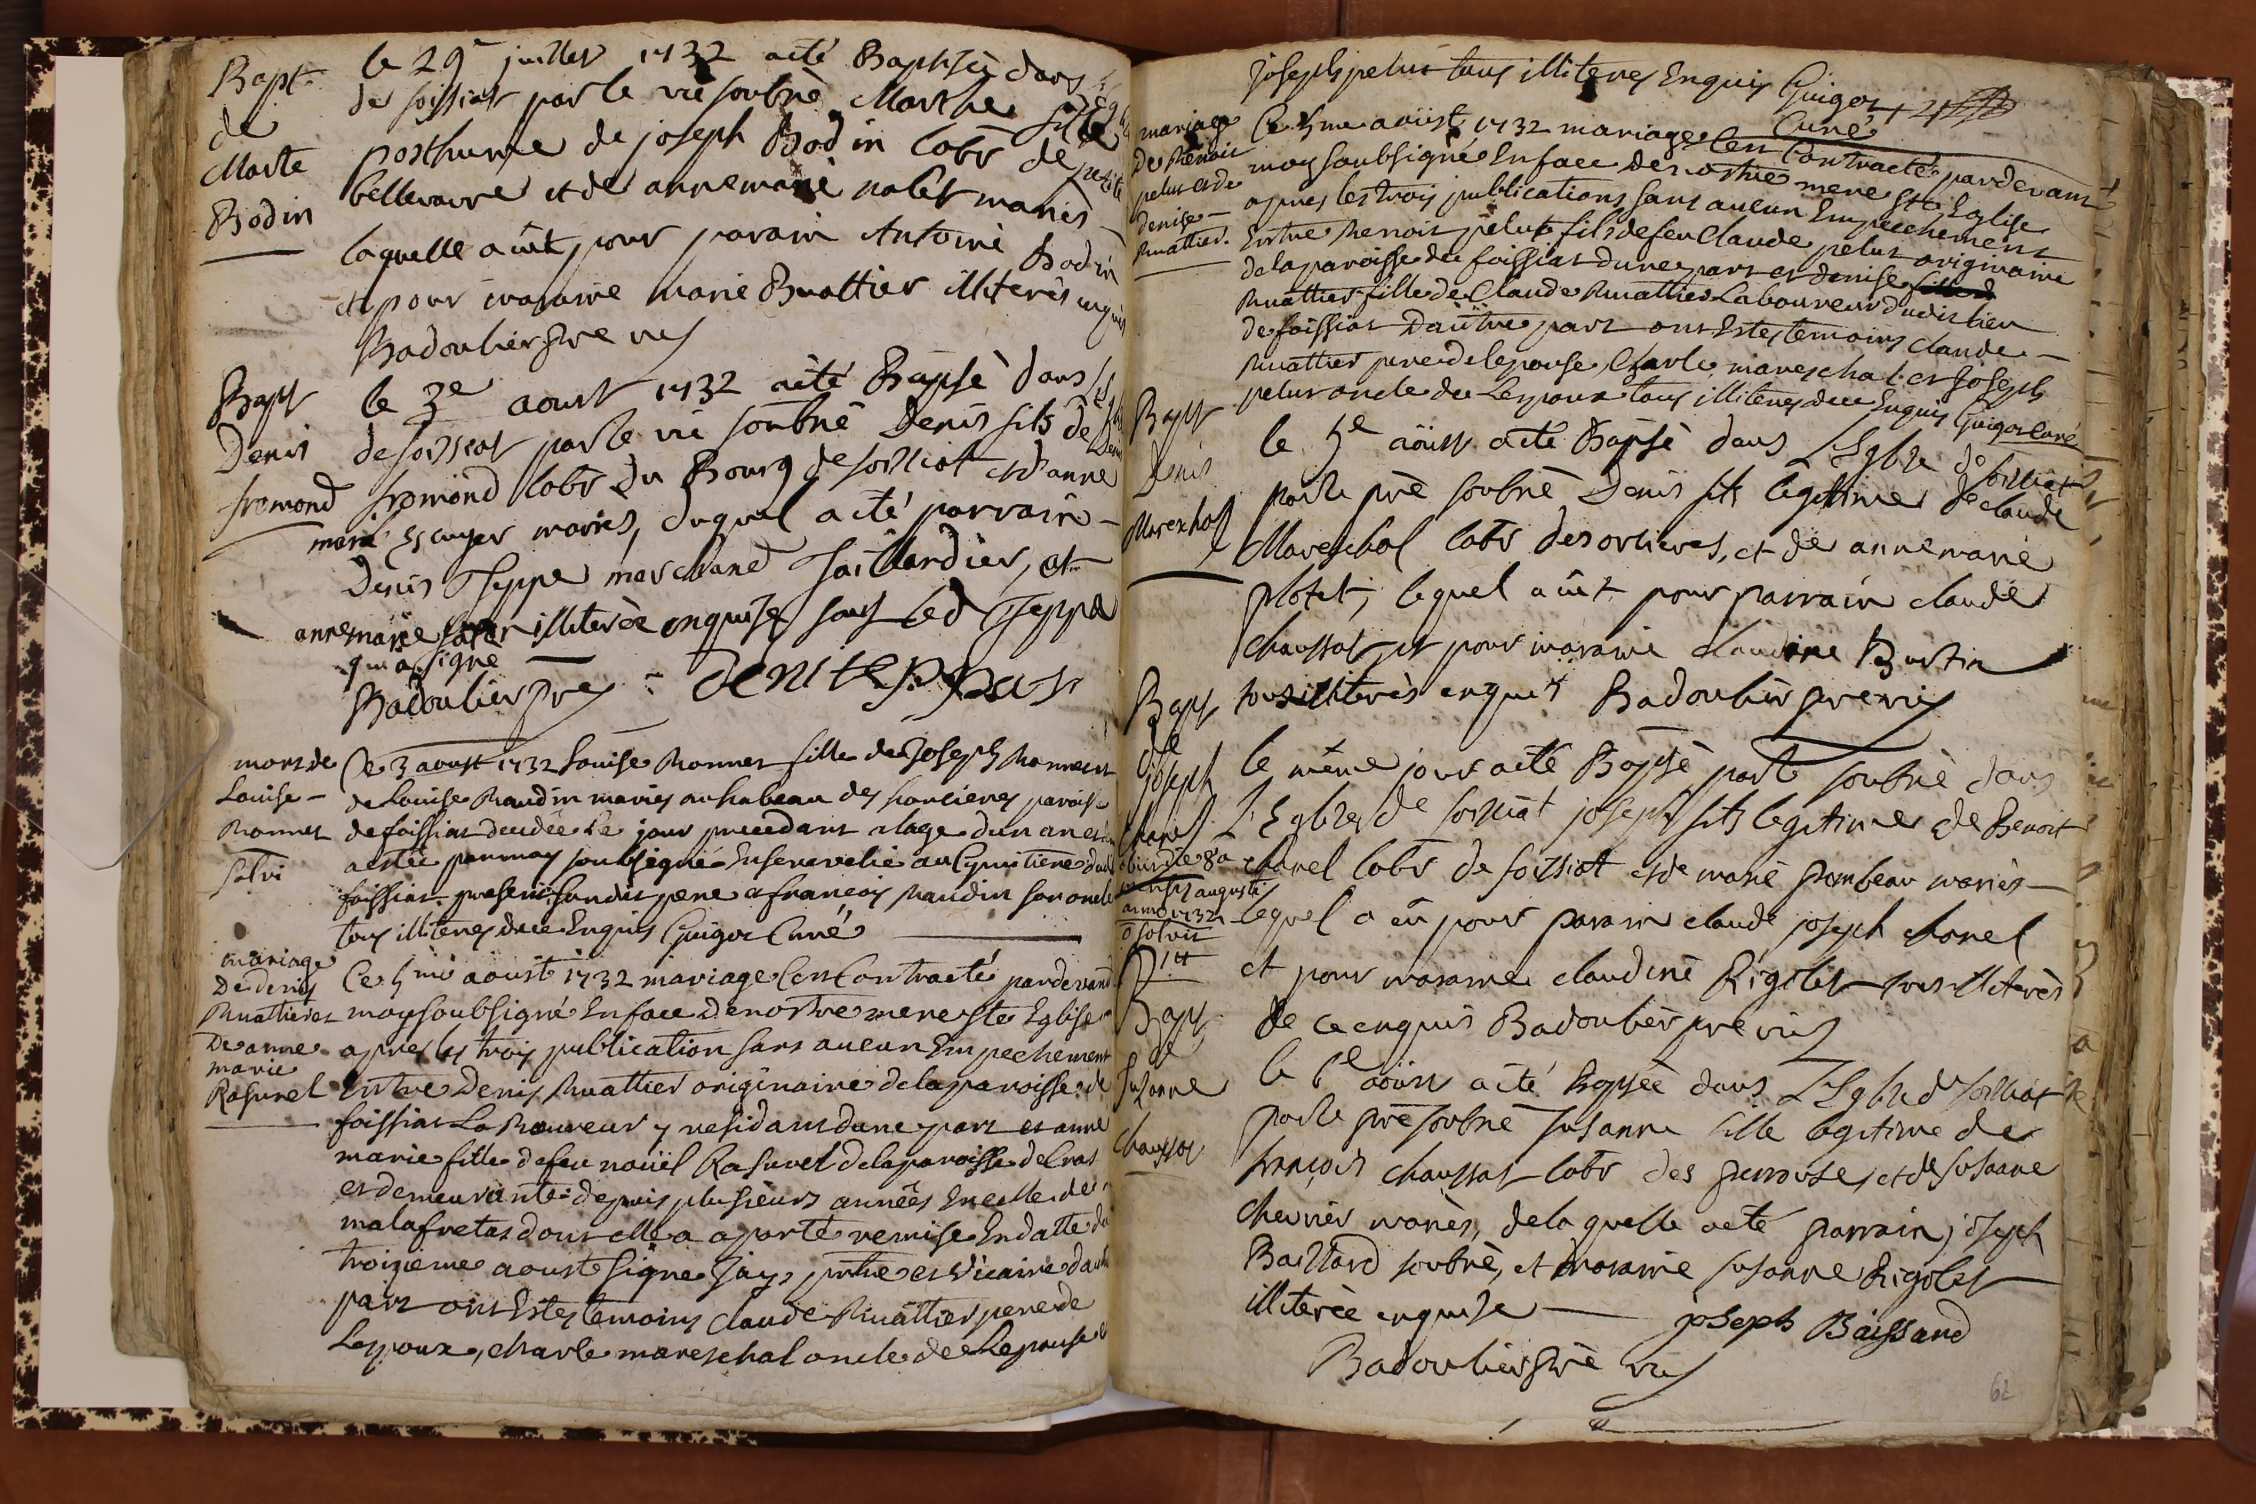 Bapt
de
Marte
Bodin
le 29e juillet 1732 a eté Baptisée dans
de foissiat par le vic soubné Marthe fille
posthume de joseph Bodin labr de petite
bellevavre et de anne marie nalet mariés
laquelle a eut pour parain Antoine Bodin
et pour maraine marie Buattier illiterés enquis
Badoulier ptre vic
Bapt
Denis
fromond
le 3e aoust 1732 a eté Baptsé dans
de foissiat par le vic soubné Denis fils de
fromond labr du Bourg de foissiat et d'anne
marie Escuyer mariés, duquel a eté parrain
Denis Teppe marchand taillandier, et
anne marie illiterée enquise sauf led Teppe
qui a signé
Badoulier ptre denis teppe
mort de
Louise
Monnet
solvi
Ce 3 aoust 1732 Louise Monnet fille de Joseph Monnet et
de Louise Maudin mariés au habeau des paroisse
de foissiat decedée le jour precedant a lage dun an et
a estée par moy soubsigné Ensevevelie au Cymitiere dud
foissiat present sondit pere & francois Maudin son oncle
tous illiteres de ce Enquis Guigot Curé
mariage
De denis
Muattier et
De anne
marie
Rasurel
Ce 5me aoust 1732 mariage Cest Contracté pardevant
moy soubsigné En face De nostre mere ste Eglise
apres les trois publication sans aucun Empechement
Entre Denis Muattier originaire de la paroisse de
foissiat Laboureur y residant dune part et anne
marie fille de feu noüel Rasurel de la paroisse de Cras
et demeurante depuis plusieurs années En celle de
malafretaz dont elle a aporté remise En datte du
troisieme aoust signé Jay, prtre et Vicaire dautre
part ont Estes temoins Claude Muattier pere de
Lepoux, charle mareschal oncle de Lepouse et
Joseph pelut tous illiteres Enquis Guigot
Curé
mariage
De Benoit
pelut et de
denise
Muattier
Ce 5me aoüst 1732 mariage Cest Contracté pardevant
moy soubsigné En face De nostre mere ste Eglise
apres les trois publications sans aucun Empechement
Entre Benoit pelut fils de feu Claude pelut originaire
de la paroisse de foissiat dune part et denise
Muattier fille de Claude Muattier Laboureur dudit lieu
de foissiat Dautre part ont Estes temoins Claude
Muattier pere de lepouse, Charle mareschal et Joseph
pelut oncle de Lepoux tous illiteres de ce Enquis Guigot Curé
Bapt
Denis
Mareschal
le 5e aoüst a eté Baptsé dans L'Eglise de foissiat
par le ptre soubné Denis fils legitime de claude
Mareschal labr des orlieres, et de anne marie
plotet, lequel a eut pour parrain claude
chaussat et pour maraine claudine Burtin
tous illiterés enquis Badoulier ptre vic
Bapt
de
joseph
chanel
obiit die 8a
mensis augusti
anno 1732
solvit
le même jour a eté Baptsé par le soubné dans
L'Eglise de foissiat joseph fils legitime de Benoit
chanel labr de foissiat et de marie pombeau mariés
lequel a eu pour parain claude joseph chanel
et pour maraine claudine Rigolet tous illiterés
de ce enquis Badoulier ptre vic
Bapt
de
Susanne
chaussat
le 6e aoüst a eté baptsée dans L'Eglise de foissiat
par le ptre soubné Susanne fille legitime de
françois chaussat labr des perrouse, et de Susanne
chevrier mariés, de laquelle a eté parrain joseph
Baissard soubné, et maraine susanne Rigolet
illiterée enquise joseph Baissard
Badoulier ptre vic
62